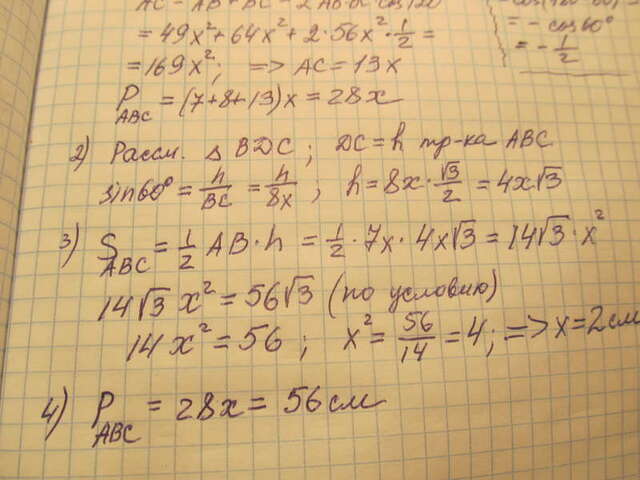 AC² = AB² + BC² - 2AB·BC cos120°
= 49x² + 64x² + 2·56x²·1/2 =
= - cos 60°
= - 1/2
= 169x²; => AC = 13x
P_ABC = (7+8+13)x = 28x
2) Рассм. △ BDC; DC = h тр-ка ABC
sin60° = h/BC = h/8x; h = 8x·√3/2 = 4x√3
3) S_ABC = 1/2 AB·h = 1/2·7x·4x√3 = 14√3·x²
14√3 x² = 56√3 (по условию)
14x² = 56; x² = 56/14 = 4; => x = 2см
4) P_ABC = 28x = 56см